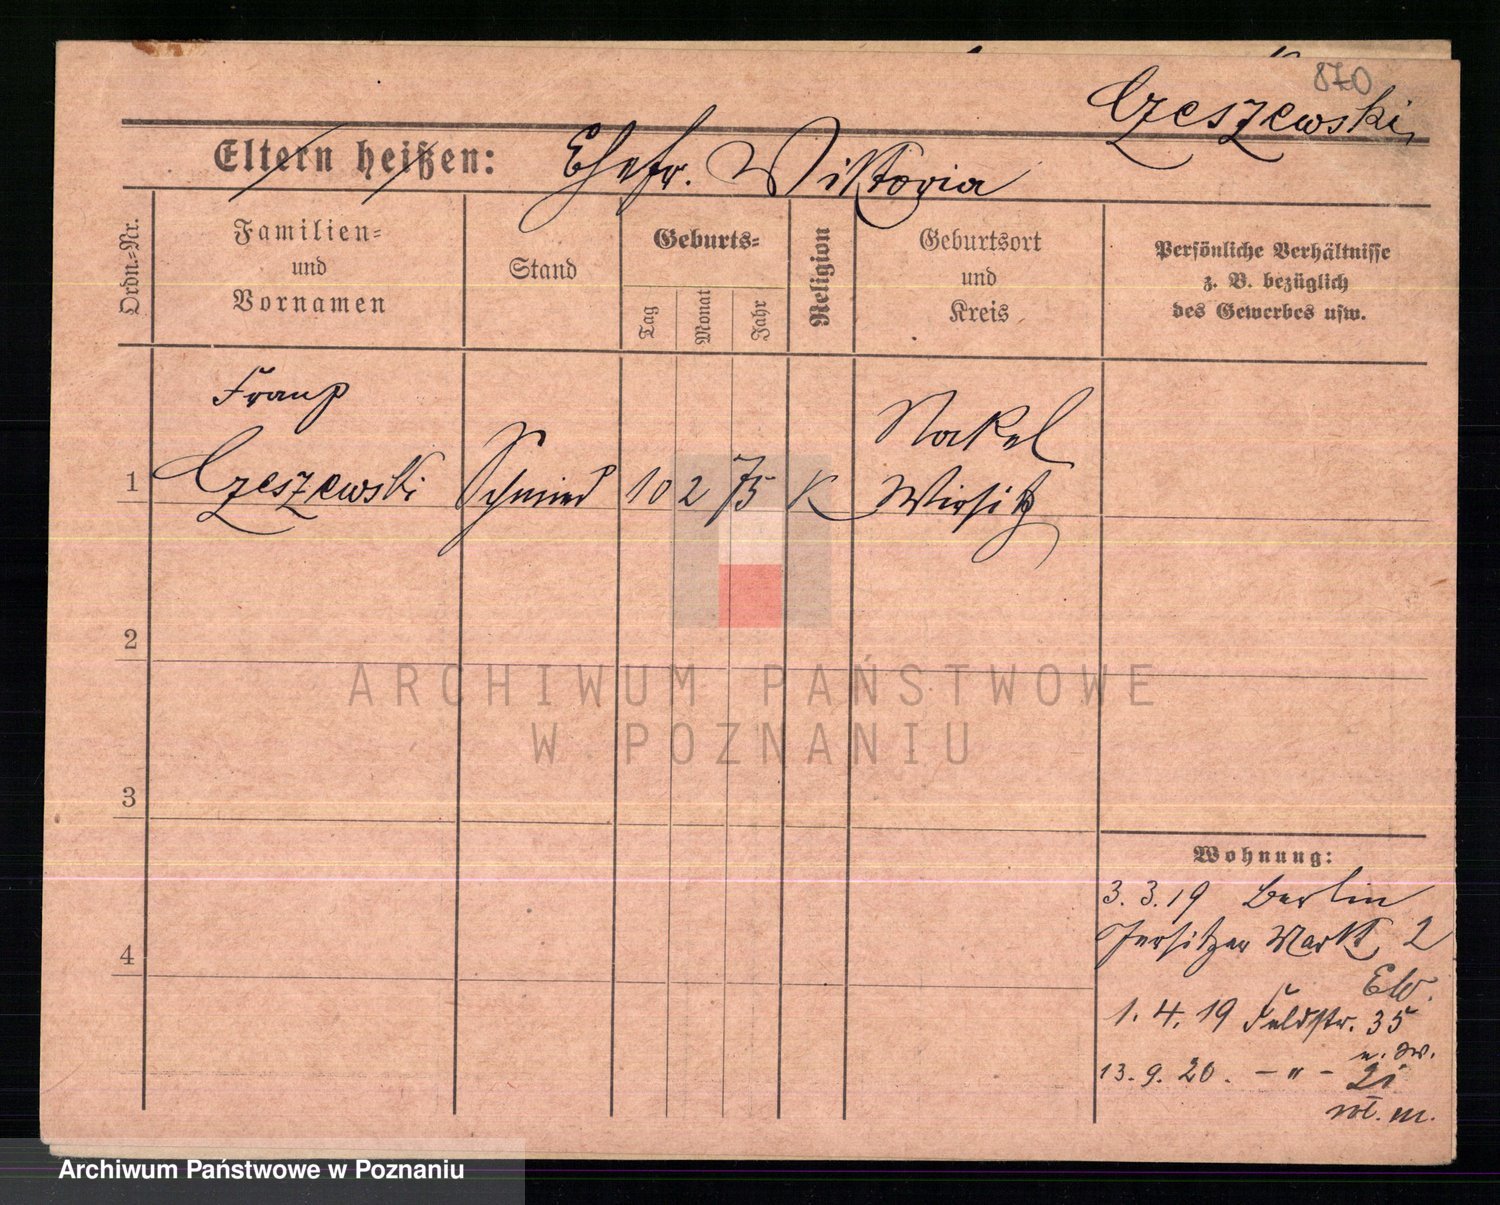 870
Czeszewski
Eltern heißen: Ehefr. Wiktoria
Ordn.-Nr.
Familien-
und
Vornamen
Stand
Geburts-
Tag
Monat
Jahr
Religion
Geburtsort
und
Kreis
Persönliche Verhältnisse
z. B. bezüglich
des Gewerbes usw.
Franz
Nakel
1 Czeszewski Schmied 10 2 75 K Wirsitz
2
3
4
ARCHIWUM PAŃSTWOWE
W POZNANIU
Wohnung:
3. 3. 19 Berlin
Jersitzer Markt 2
Ew.
1. 4. 19 Feldstr. 35
13. 9. 20. – " –
Archiwum Państwowe w Poznaniu